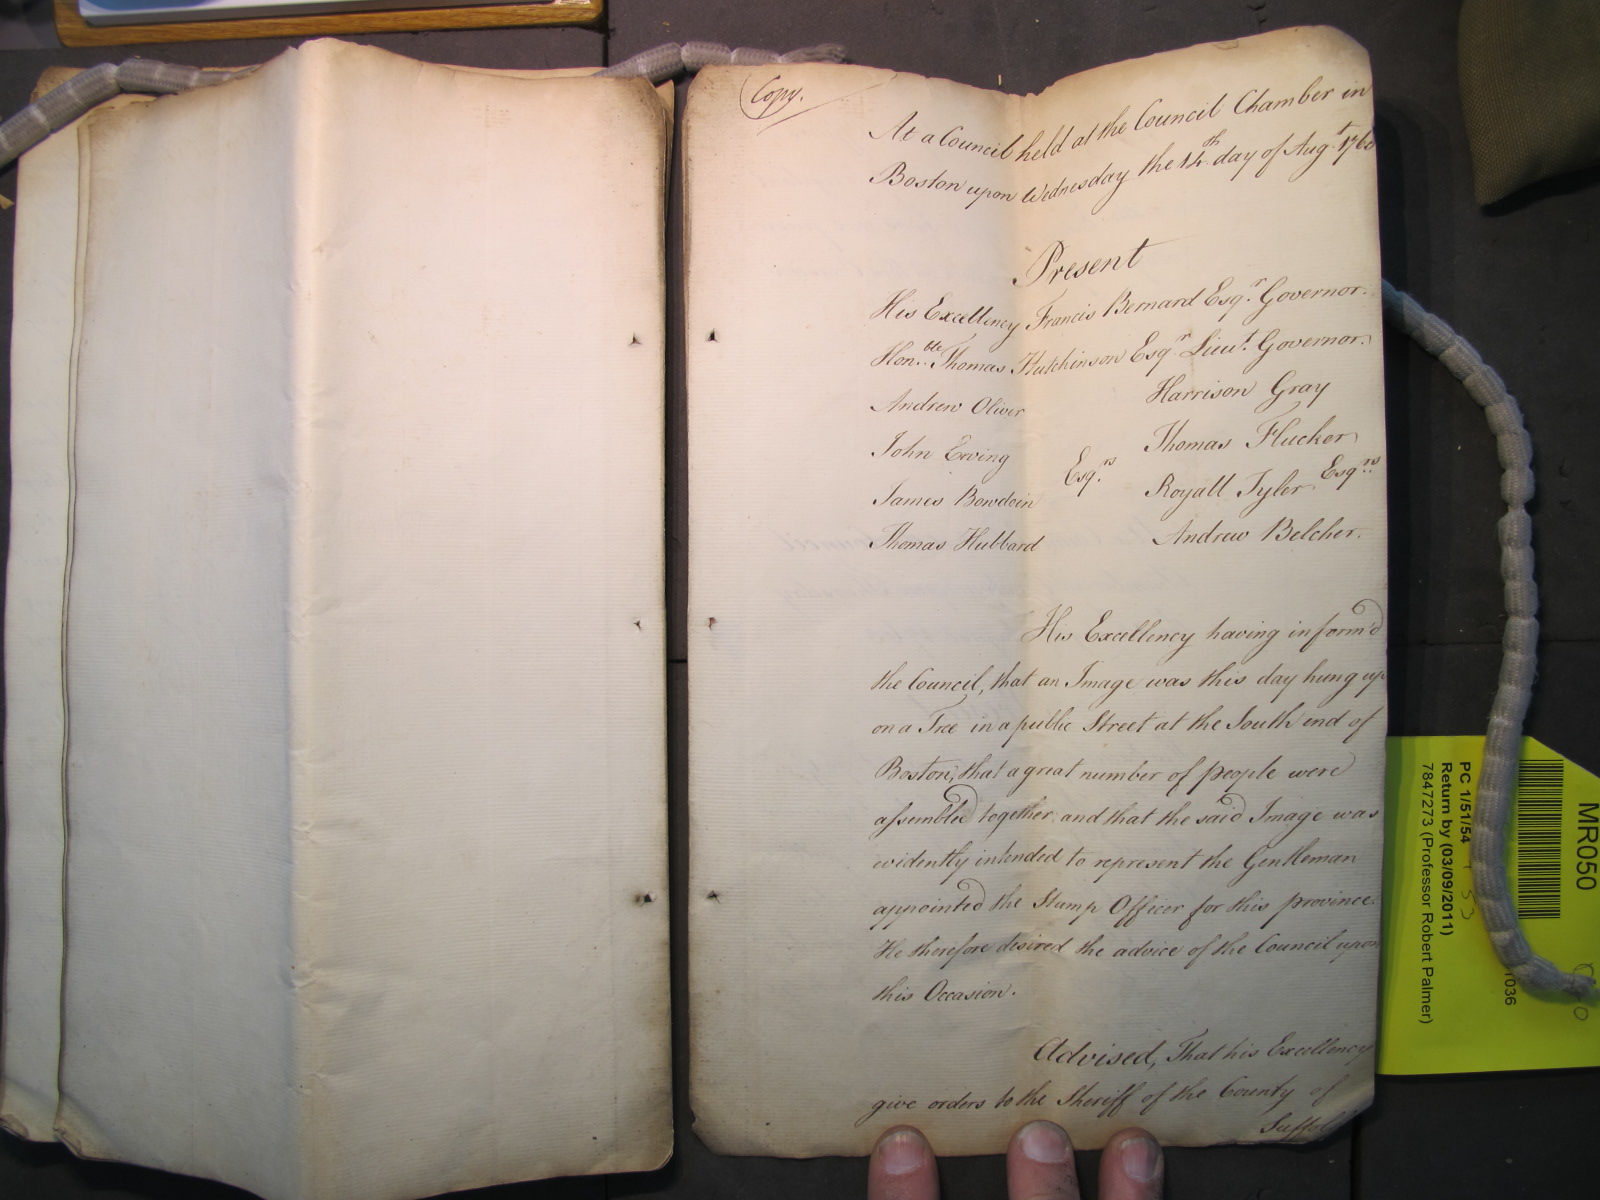 Copy.
At a Council held at the Council Chamber in
Boston upon Wednesday the 14th day of Augt 176
Present
His Excellency Francis Bernard Esqr Governor.
Honble Thomas Hutchinson Esqr Lieut. Governor.
Andrew Oliver
John Erving
James Bowdoin
Thomas Hubbard
Esqrs
Harrison Gray
Thomas Flucker
Royall Tyler
Andrew Belcher.
Esqrs
His Excellency having inform'd
the Council, that an Image was this day hung up
on a Tree in a public Street at the South end of
Boston, that a great number of people were
assembled together and that the said Image was
evidently intended to represent the Gentleman
appointed the Stamp Officer for this province.
He therefore desired the advice of the Council upon
this Occasion.
Advised, That his Excellency
give orders to the Sheriff of the County of
Suffol
MR050
PC 1/51/54
Return by (03/09/2011)
7847273 (Professor Robert Palmer)
1036